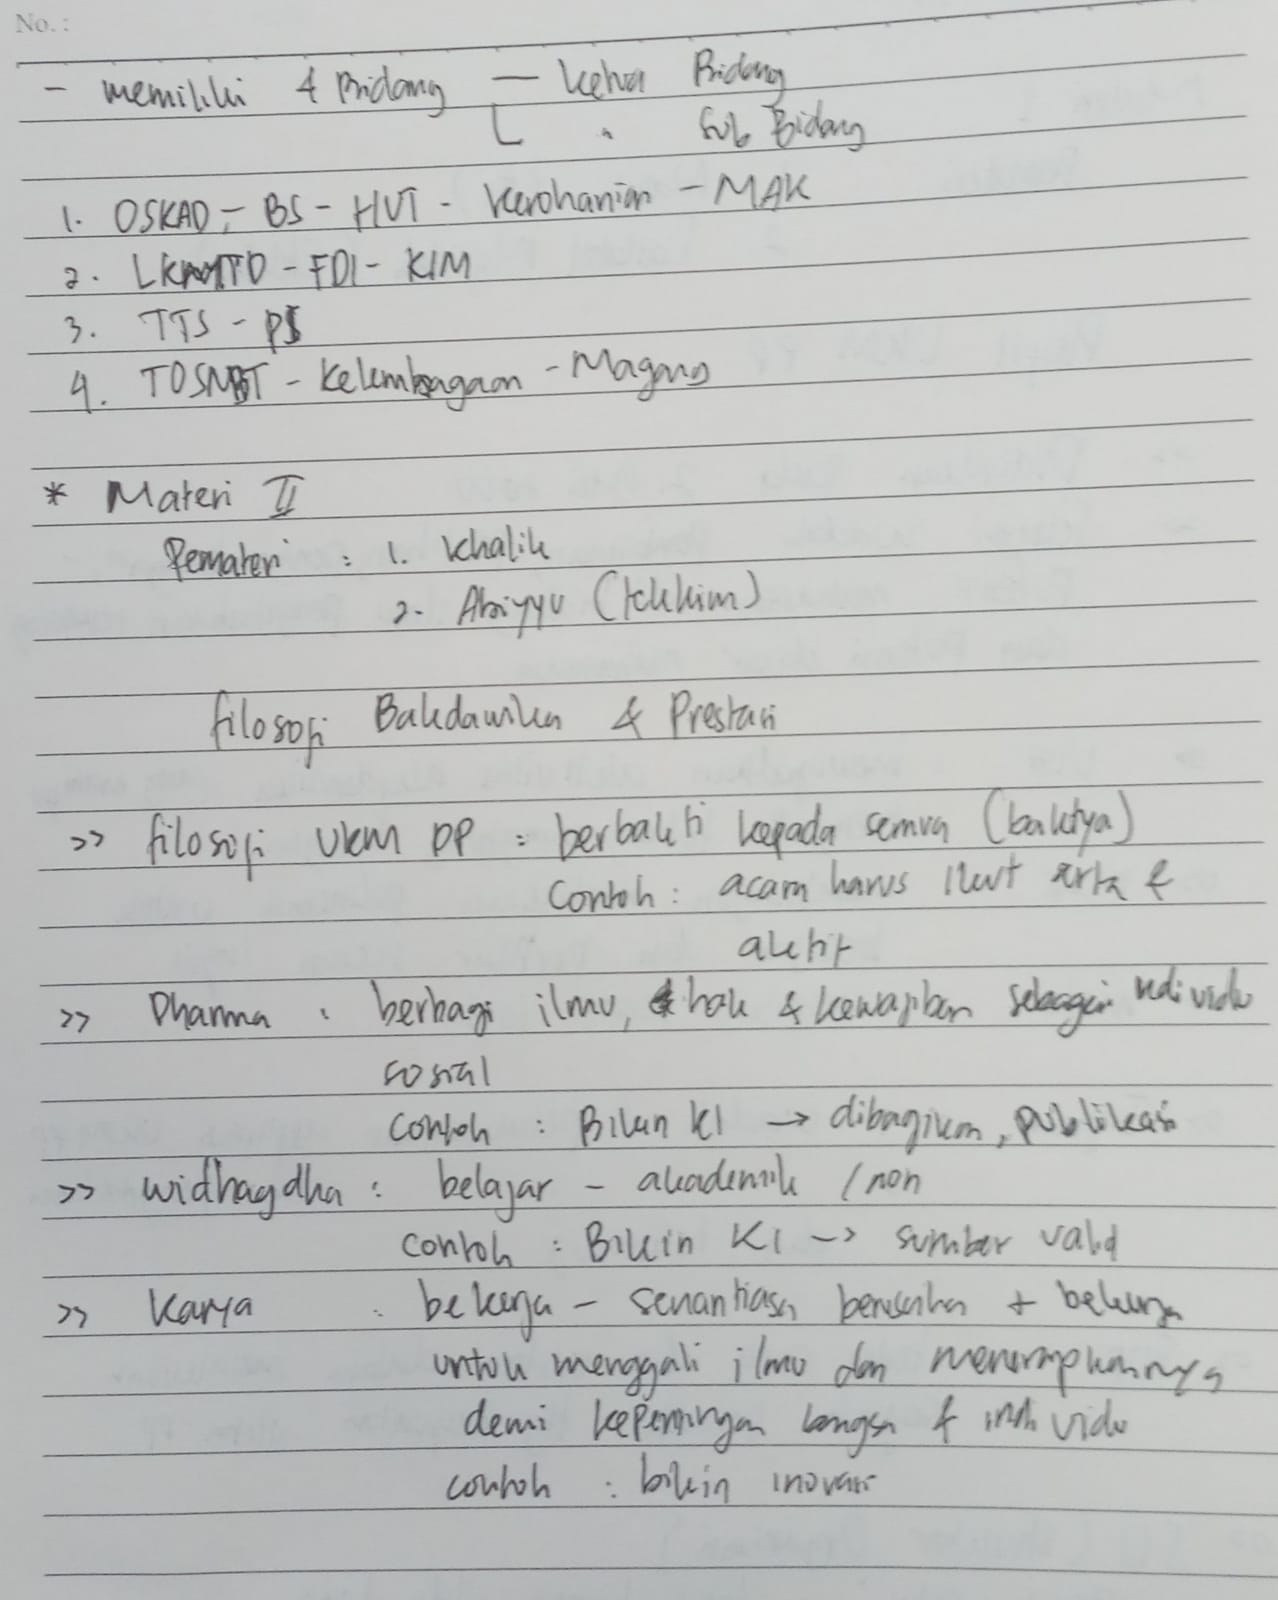 No. :
- memiliki 4 Bidang — ketua Bidang
" Sub Bidang
1. OSKAD - BS - HUT - Kerohanian - MAK
2. TD - FDI - KIM
3. TTS - PI
4. - Kelembagaan - Magang
* Materi II
Pemateri : 1. Khalik
2. Abiyyu (tekkim)
filosofi Baktdawika & Prestasi
>> filosofi UKM PP : berbakti kepada semua (baktya)
Contoh : acara harus ikut serta &
aktif
>> Dharma : berbagi ilmu, hak & kewajiban sebagai individu
sosial
contoh : Bikin KI → dibagikan, publikasi
>> widhagdha : belajar - akademik / non
contoh : Bikin KI -> sumber valid
>> Karya : bekerja - senantiasa berusaha + bekerja
untuk menggali ilmu dan menerapkannya
demi kepentingan bangsa & individu
contoh : bikin inovasi